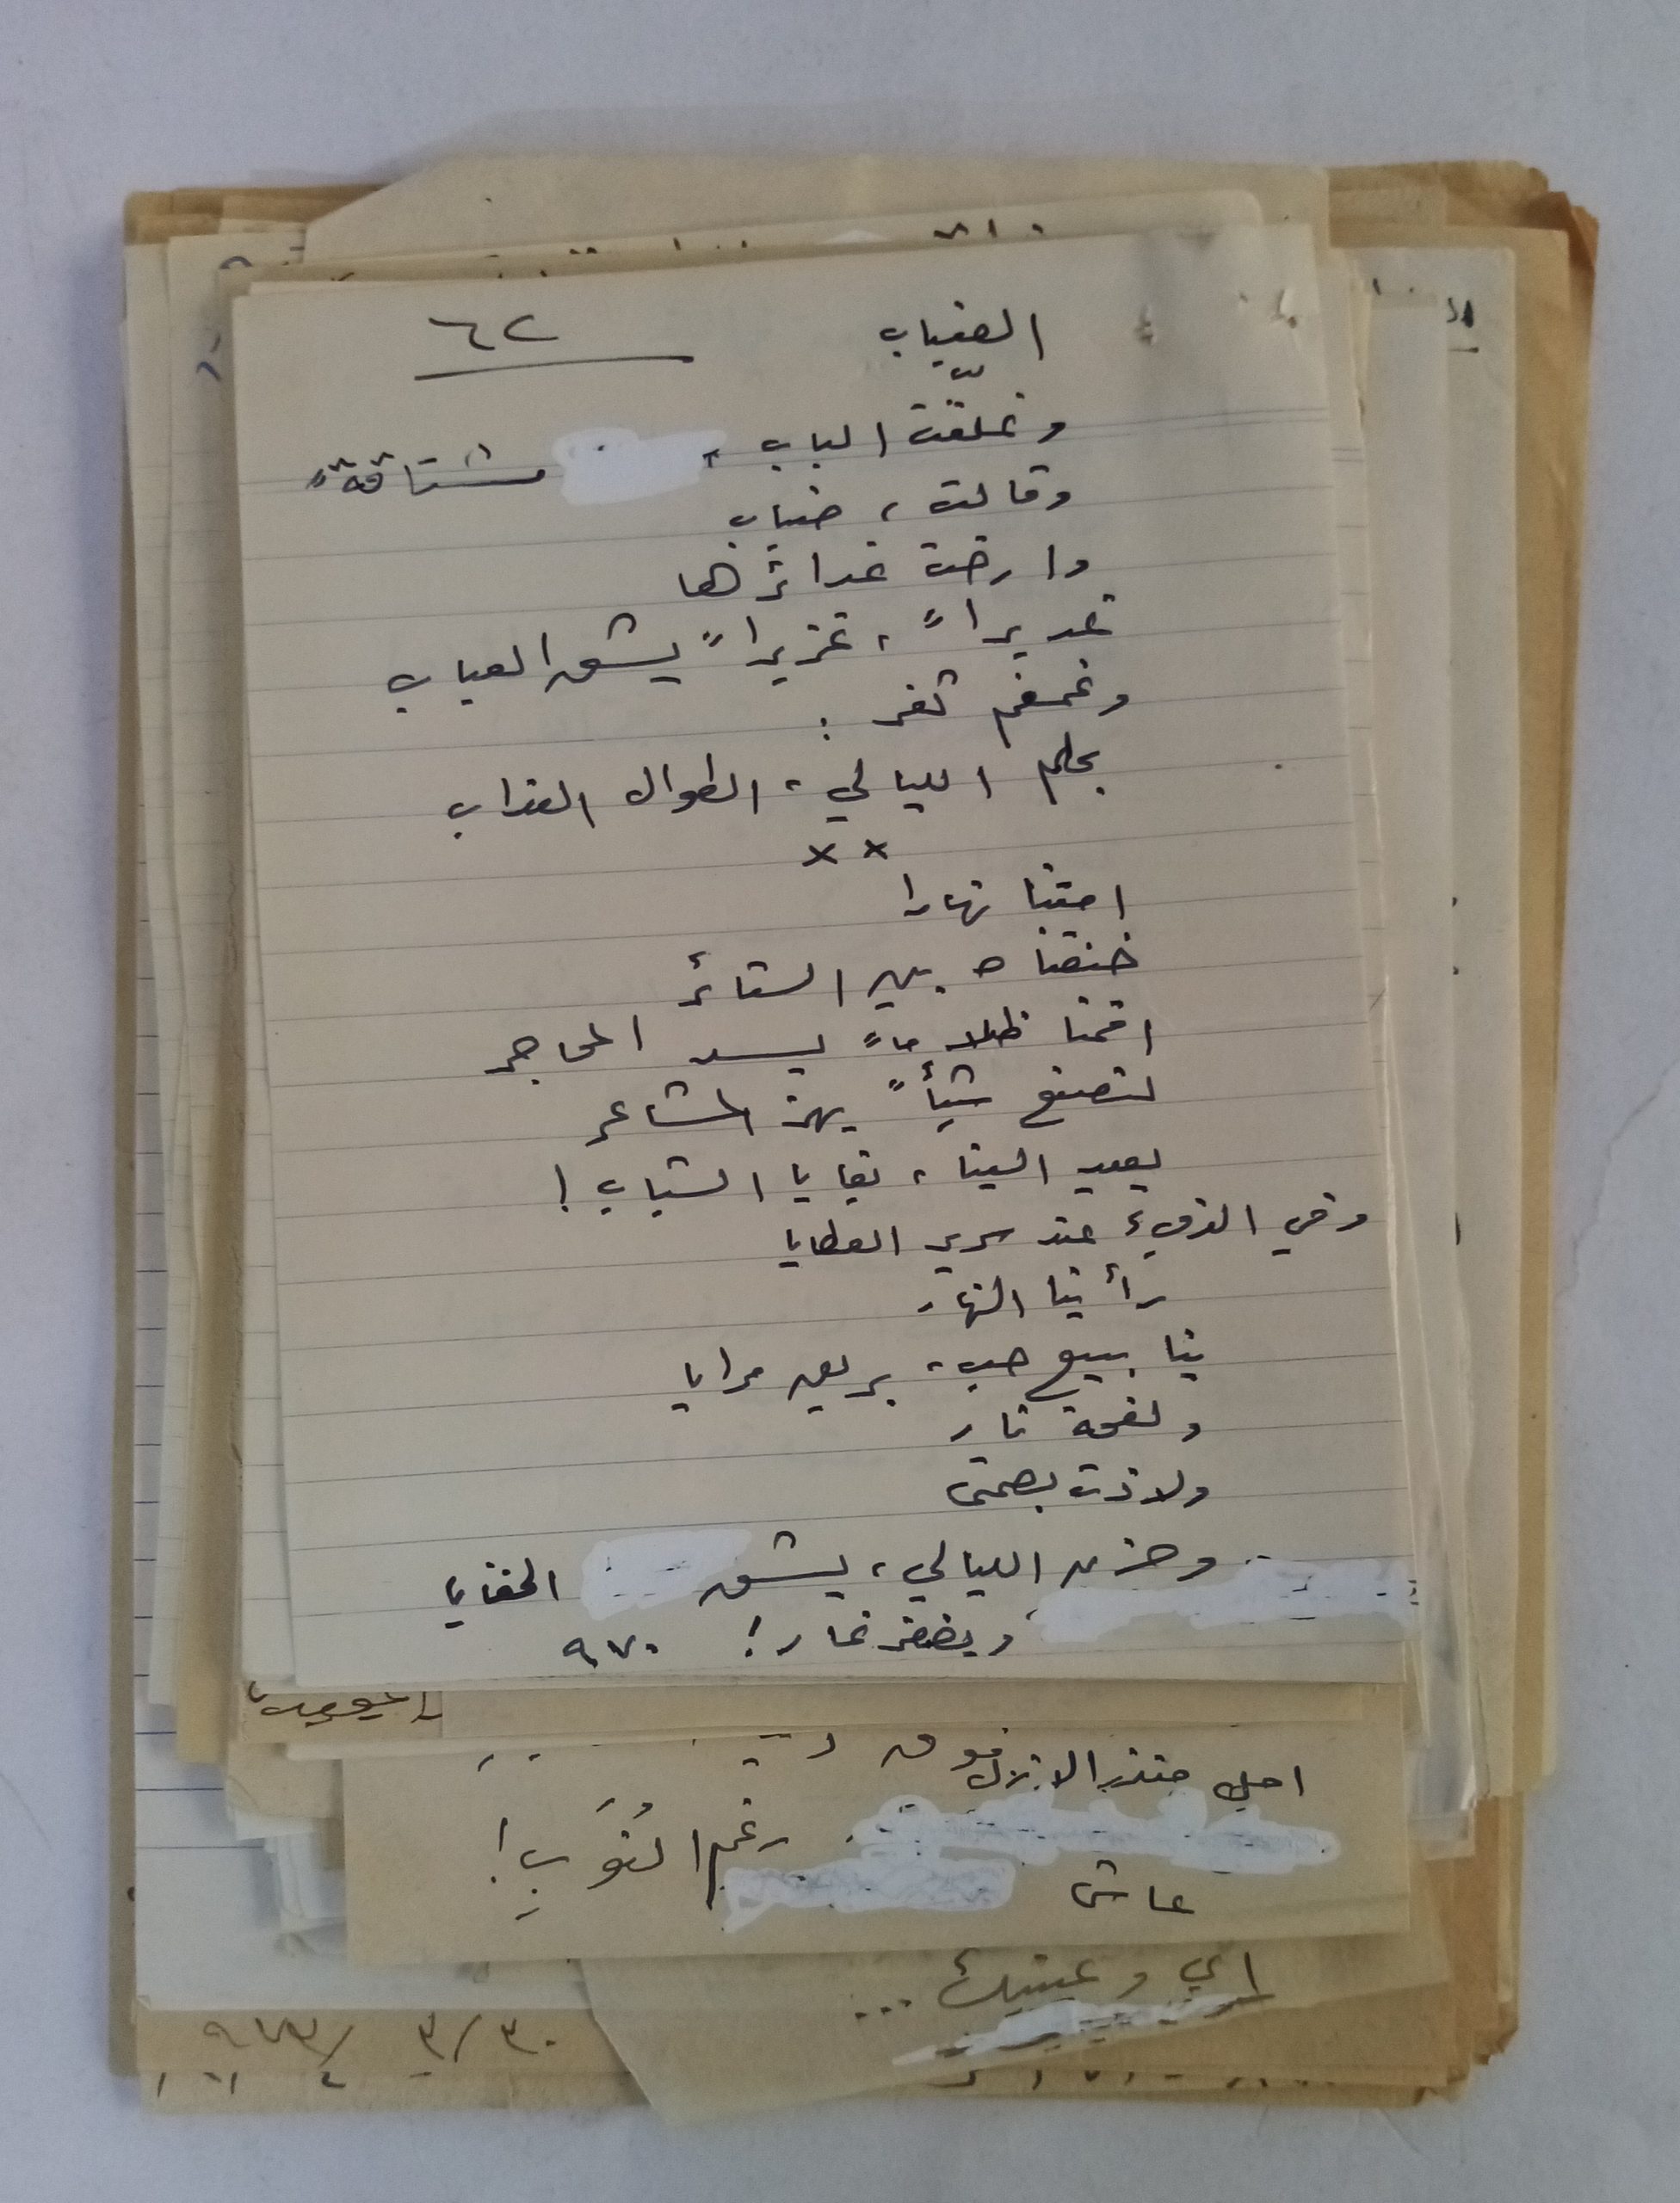 الضباب ٦٢
وغلّقت الباب، مشتاقةً
وقالت، ضباب
وارخت غدائرها
غديراً، غزيراً يشق العباب
وغمغم ثغر:
بحلم الليالي، الطوال العذاب
××
امتنا نهارا
خنقناه بين الستائر
اقمنا ظلاماً يسد المحاجر
لنصنع شيأً يهز المشاعر
يعيد الينا، بقايا الشباب!
وفي الدفيء عند سرير العطايا
رأينا النهار
ينابيع حب، بريق مرايا
ولفحة نار
ولاذت بصمتي
وحزن الليالي، يشق الخفايا
ويضفر غار! ٩٧٠
رغم النُوَبِ!
عاش
اي وعينيك...
٣٠/٣ /٩٧٣